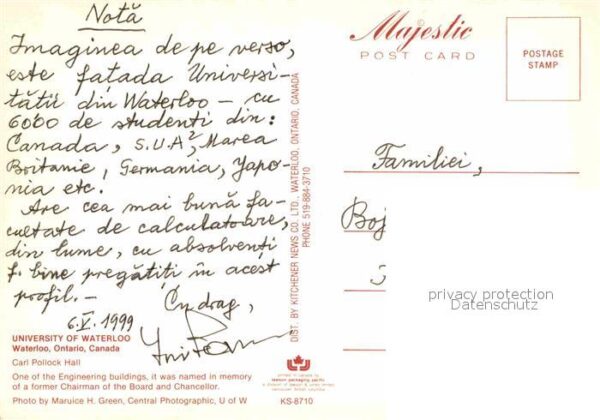 Notă
Imaginea de pe verso,
este fațada Universi-
tății din Waterloo – cu
6000 de studenti din:
Canada, S.U.A., Marea
Britanie, Germania, Japo-
nia etc.
Are cea mai bună fa-
cultate de calculatoare,
din lume, cu absolvenți
f. bine pregătiți în acest
profil. –
Cu drag,
6.V.1999
UNIVERSITY OF WATERLOO
Waterloo, Ontario, Canada
Carl Pollock Hall
One of the Engineering buildings, it was named in memory
of a former Chairman of the Board and Chancellor.
Photo by Maruice H. Green, Central Photographic, U of W
DIST. BY KITCHENER NEWS CO. LTD., WATERLOO, ONTARIO, CANADA
PHONE 519-884-3710
Majestic
POST CARD
POSTAGE
STAMP
Familiei,
Boj
privacy protection
Datenschutz
printed in canada by
lawson packaging pacific
KS-8710